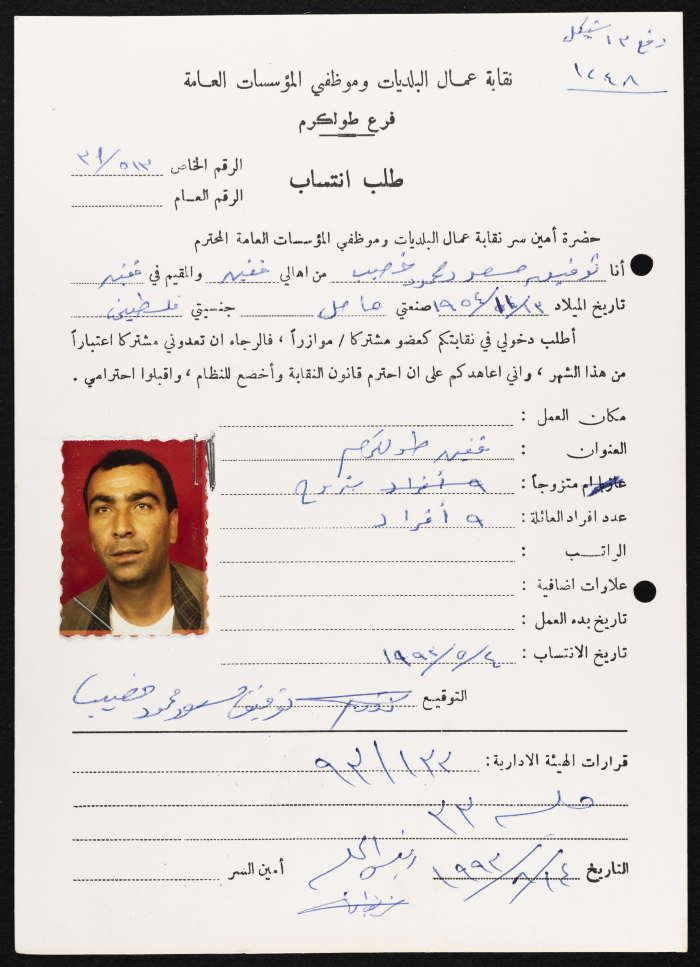 دفع ١٣ شيكل
١٢٤٨
نقابة عمال البلديات وموظفي المؤسسات العامة
فرع طولكرم
الرقم الخاص ٣١/٥١٣
طلب انتساب
الرقم العام
حضرة أمين سر نقابة عمال البلديات وموظفي المؤسسات العامة المحترم
أنا توفيق مسعود محمود خصيب من اهالي قفين والمقيم في قفين
تاريخ الميلاد ١٩٥٤ صنعتي عامل جنسيتي فلسطيني
أطلب دخولي في نقابتكم كعضو مشتركا / موازراً ، فالرجاء ان تعدوني مشتركا اعتباراً
من هذا الشهر ، واني اعاهدكم على ان احترم قانون النقابة وأخضع للنظام ، واقبلوا احترامي .
مكان العمل :
العنوان : قفين طولكرم
متزوجاً : ٩ أفراد متزوج
عدد افراد العائلة: ٩ أفراد
الراتب :
علاوات اضافية :
تاريخ بدء العمل :
تاريخ الانتساب : ٤/٥/١٩٩٣
التوقيع توفيق مسعود محمود خصيب
قرارات الهيئة الادارية: ٩٣/١٣٣
جلسه ٣٣
التاريخ ١٩٩٣/٨/١٤ أمين السر